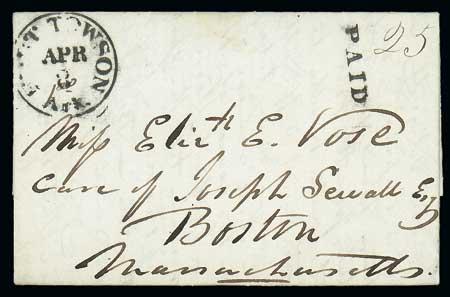 FORT TOWSON
APR
8
Ark
PAID
25
Miss Elizth E. Vose
Care of Joseph Sewall Esq
Boston
Massachusetts.